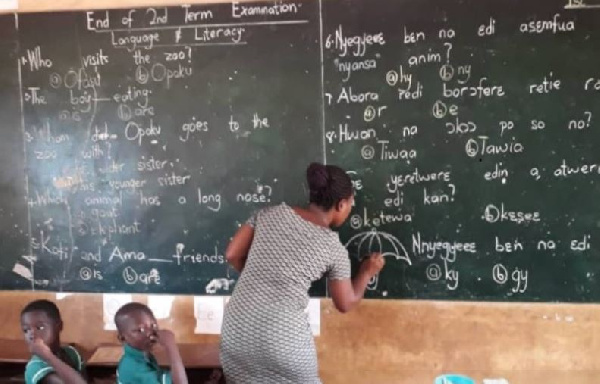 End of 2nd Term Examination
Language & Literacy
1. Who visits the zoo?
ⓐ Ofori ⓑ Opoku
2. The boy — eating.
ⓑ are
Opoku goes to the
zoo with?
elder sister
younger sister
4. Which animal has a long nose?
goat
Elephant
5. Kofi and Ama ___ friends
ⓐ is ⓑ are
6. Nyegyeɛɛ bɛn na edi asɛmfua
"nyansa" anim?
ⓐ hy ⓑ ny
7. Abora redi borɔferɛ retie
ⓐ r ⓑ e
8. Hwan na ɔbɔ po so no?
ⓐ Tiwaa ⓑ Tawia
yeretwerɛ edin a,
edi kan?
ⓐ ketewa ⓑ kɛseɛ
Nnyegyeɛɛ bɛn na edi
ⓐ ky ⓑ gy